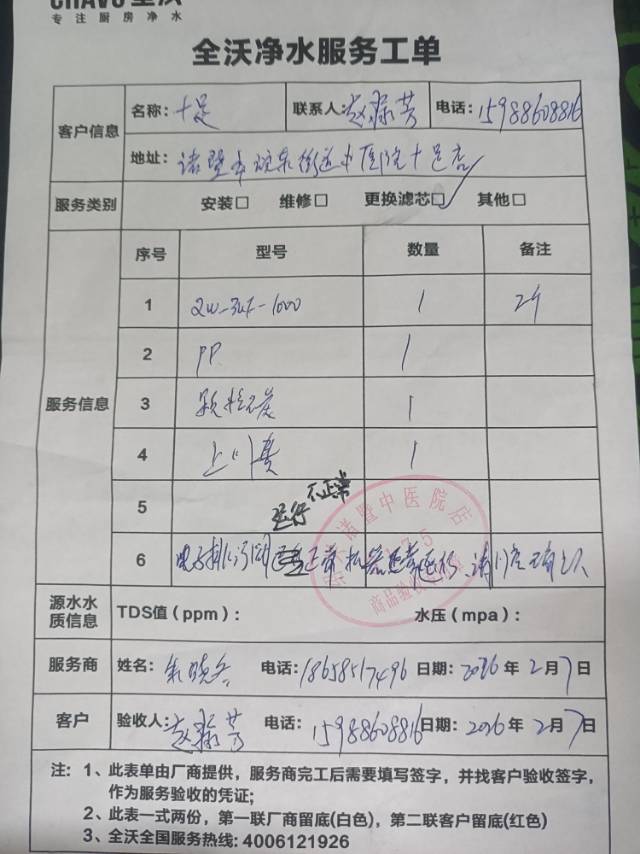 专注厨房净水
全沃净水服务工单
客户信息 名称：十足 联系人：赵 芳 电话：15988608816
地址：诸暨市 街道中医院十足店
服务类别 安装□ 维修□ 更换滤芯☑ 其他□
服务信息 序号 型号 数量 备注
1 QW-3UF-1000 1
2 PP 1
3 颗粒碳 1
4 上门费 1
5 运行不正常
6 电子排污阀 正常 机器 运行
诸暨中医院店
商品验收
源水水质信息 TDS值（ppm）： 水压（mpa）：
服务商 姓名：朱晓 电话：18658517496 日期：2026年2月7日
客户 验收人：赵 芳 电话：15988608816 日期：2026年2月7日
注：1、此表单由厂商提供，服务商完工后需要填写签字，并找客户验收签字，
作为服务验收的凭证；
2、此表一式两份，第一联厂商留底(白色)，第二联客户留底(红色)
3、全沃全国服务热线: 4006121926